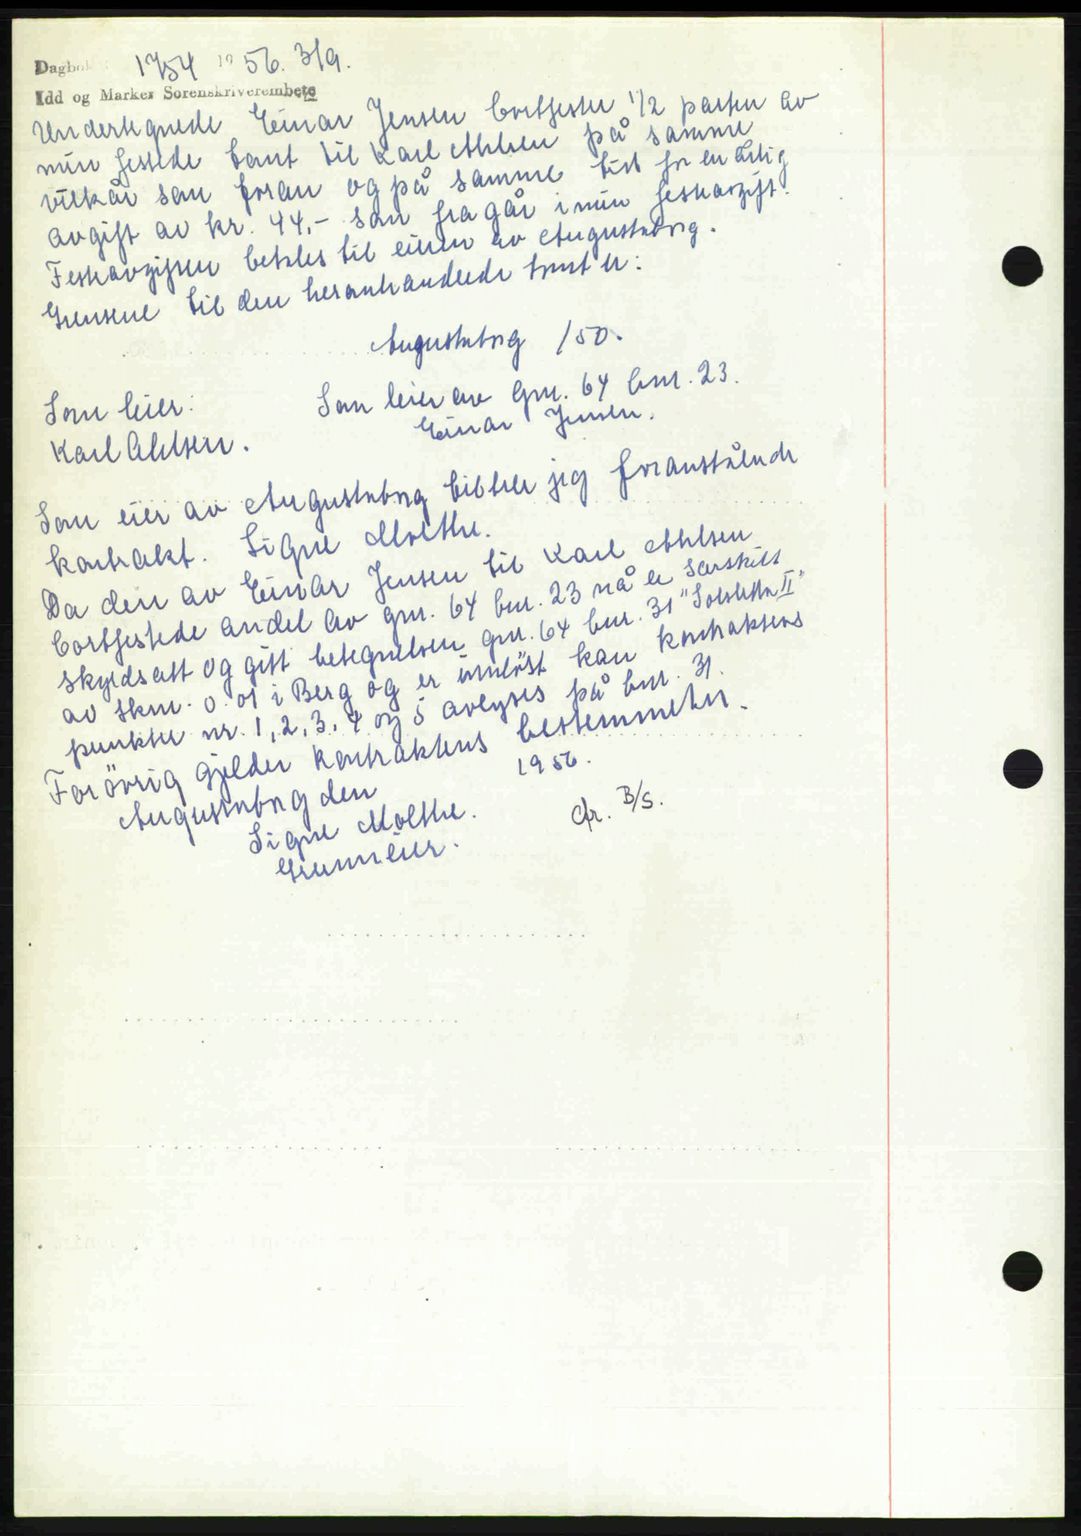 Dagbok 1754 19 56. 3/9.
Idd og Marker Sorenskriverembete
Undertegnede Einar Jensen bortfester 1/2 parten av
min festede tomt til Karl Ahlsen på samme
vilkår som foran og på samme tid for en årlig
avgift av kr. 44,- som fragår i min festeavgift.
Festeavgiften betales til eieren av Augustaborg.
Grensene til den heromhandlede tomt er:
Augustaborg /50.
Som leier: Som leier av Gnr. 64 bnr. 23.
Karl Ahlsen. Einar Jensen.
Som eier av Augustaborg tiltrer jeg foranstående
kontrakt. Signe Molthe.
Da den av Einar Jensen til Karl Ahlsen
bortfestede andel av gnr. 64 bnr. 23 nå er særskilt
skyldsatt og gitt betegnelsen gnr. 64 bnr. 31 "Solsletta II"
av skm. 0.01 i Berg og er innløst kan kontraktens
punkter nr. 1, 2, 3, 4 og 5 avlyses på bnr. 31.
Forövrig gjelder kontraktens bestemmelser.
Augustaborg den 1956.
Signe Molthe. cfr. B/S.
Grunneier.